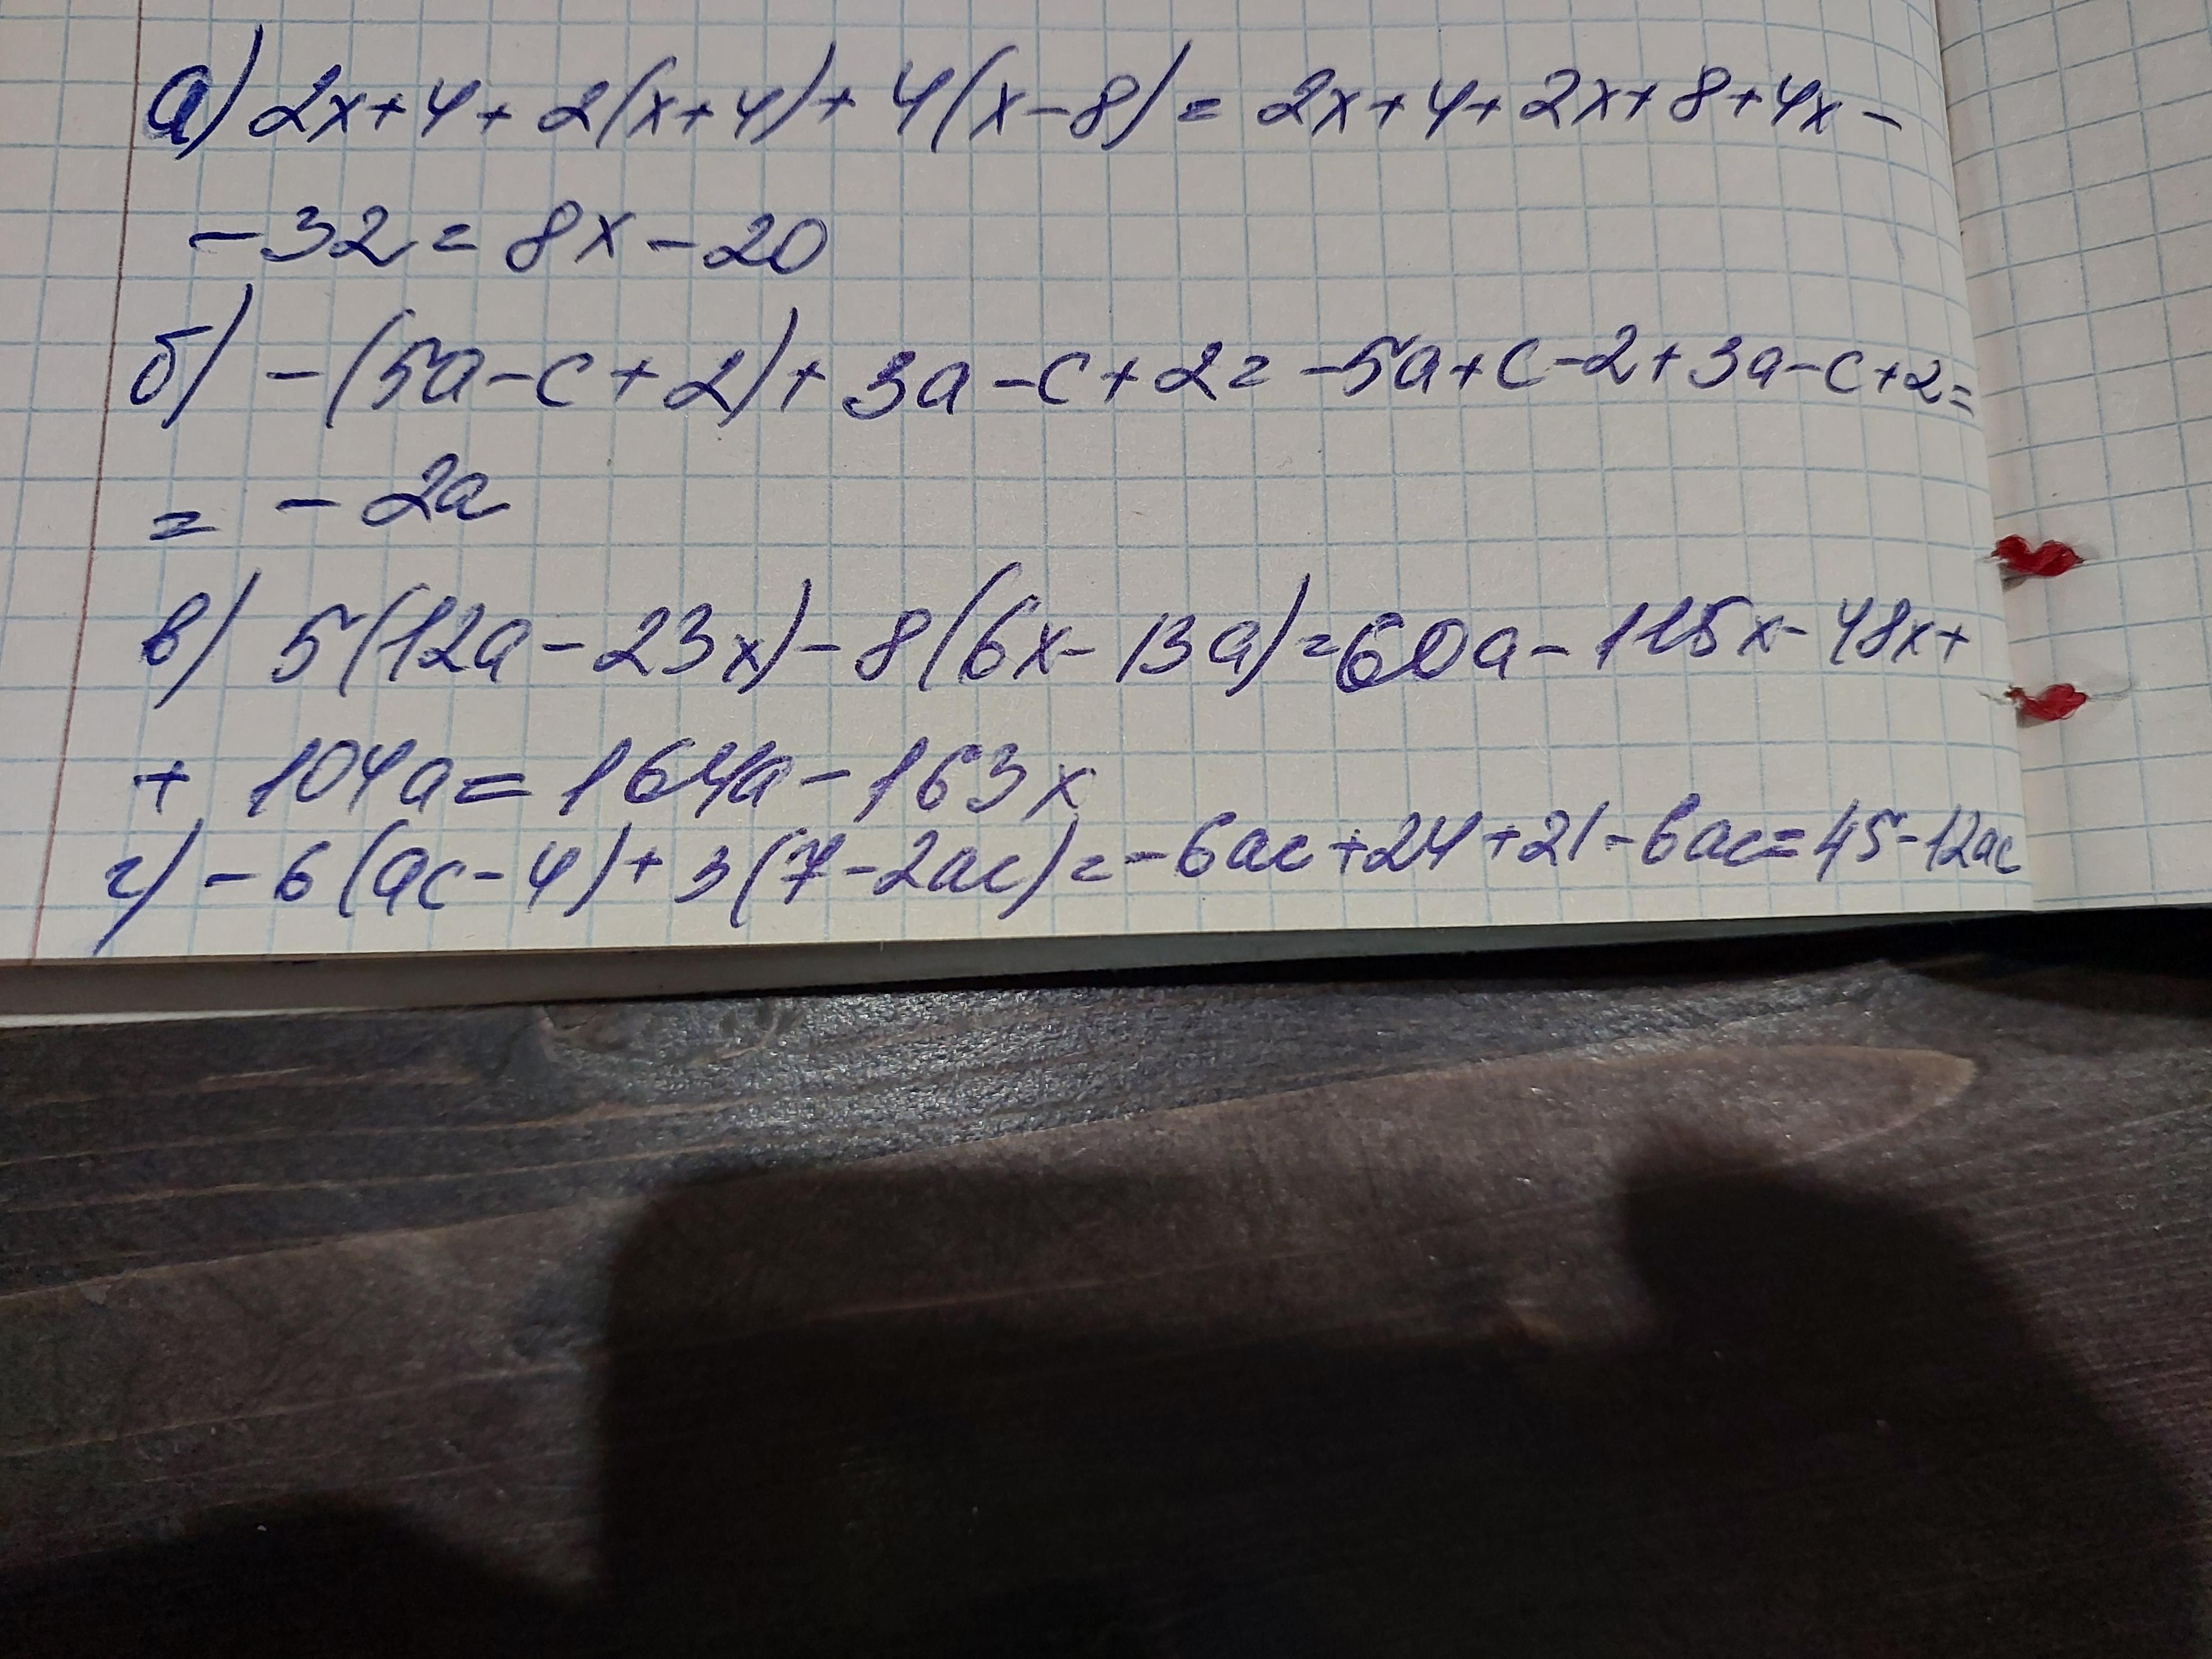 а) 2x+4+2(x+4)+4(x-8)=2x+4+2x+8+4x-
-32=8x-20
б) -(5a-c+2)+3a-c+2=-5a+c-2+3a-c+2=
= -2a
в) 5(12a-23x)-8(6x-13a)=60a-115x-48x+
+ 104a=164a-163x
г) -6(ac-4)+3(7-2ac)=-6ac+24+21-6ac=45-12ac